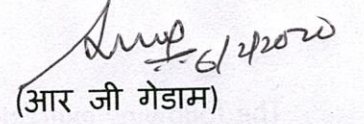 6/2/2020
(आर जी गेडाम)